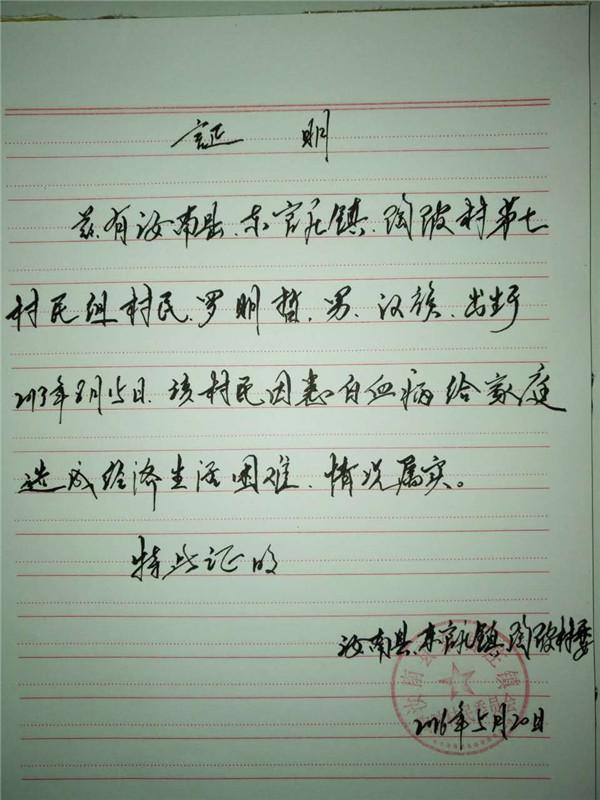 证 明
兹有汝南县、东官庄镇、陶陂村第七
村民组村民、罗明哲、男、汉族、出生于
2013年8月15日、该村民因患白血病给家庭
造成经济生活困难、情况属实。
特此证明
汝南县、东官庄镇、陶陂村委
2016年5月20日